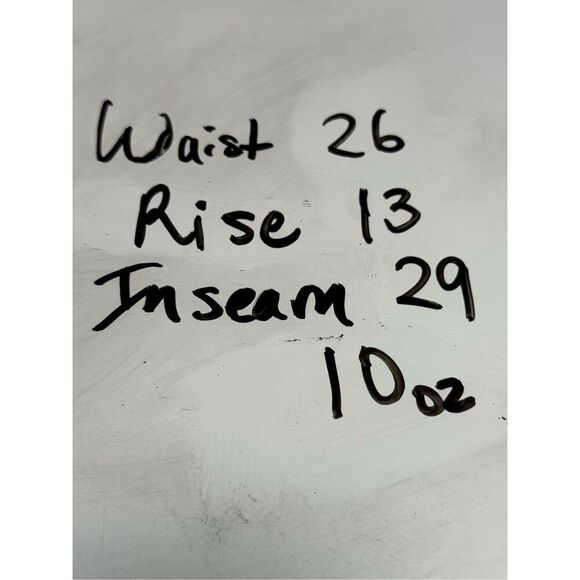 Waist 26
Rise 13
Inseam 29
10 oz